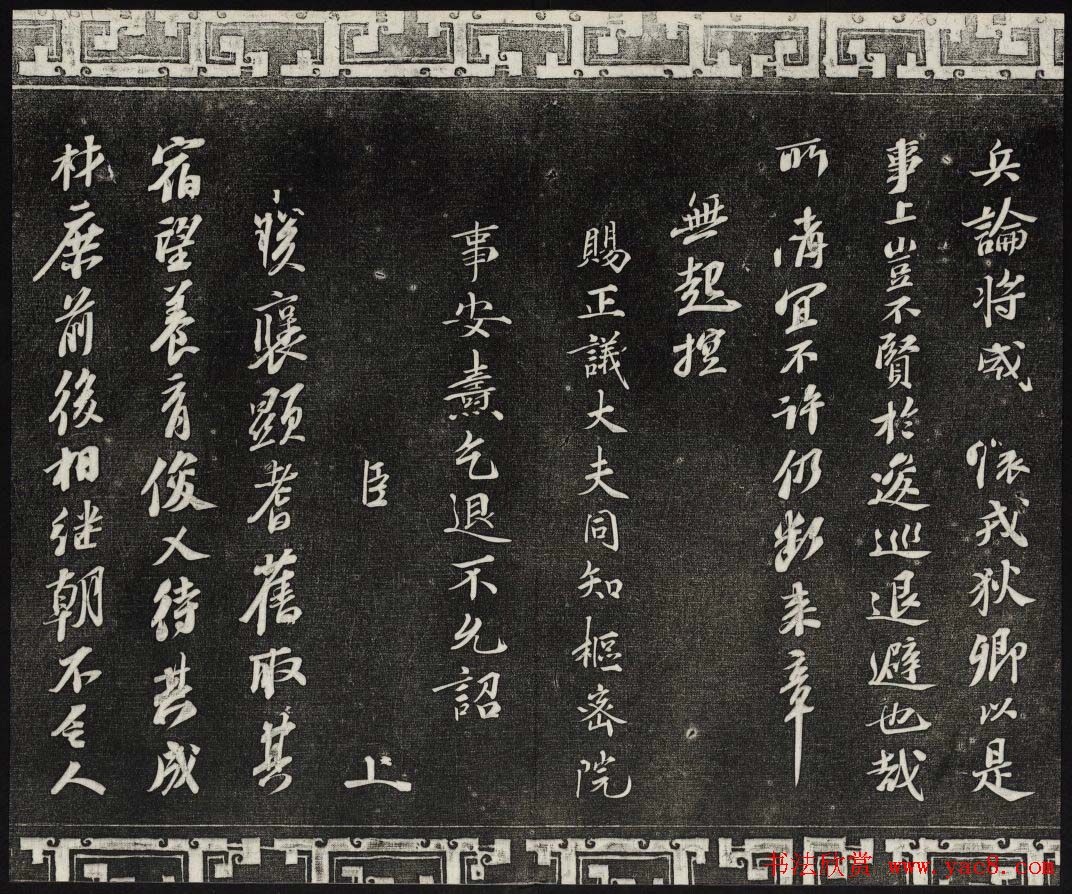 兵論将成 懷戎狄卿以是
事上豈不賢於逡巡退避也哉
所請宜不許仍斷来章
無起
賜正議大夫同知樞密院
事安燾乞退不允詔
臣 上
朕襃顯耆舊取其
宿望養育俊乂待其成
材庶前後相继朝不乏人
书法欣赏 www.yac8.com